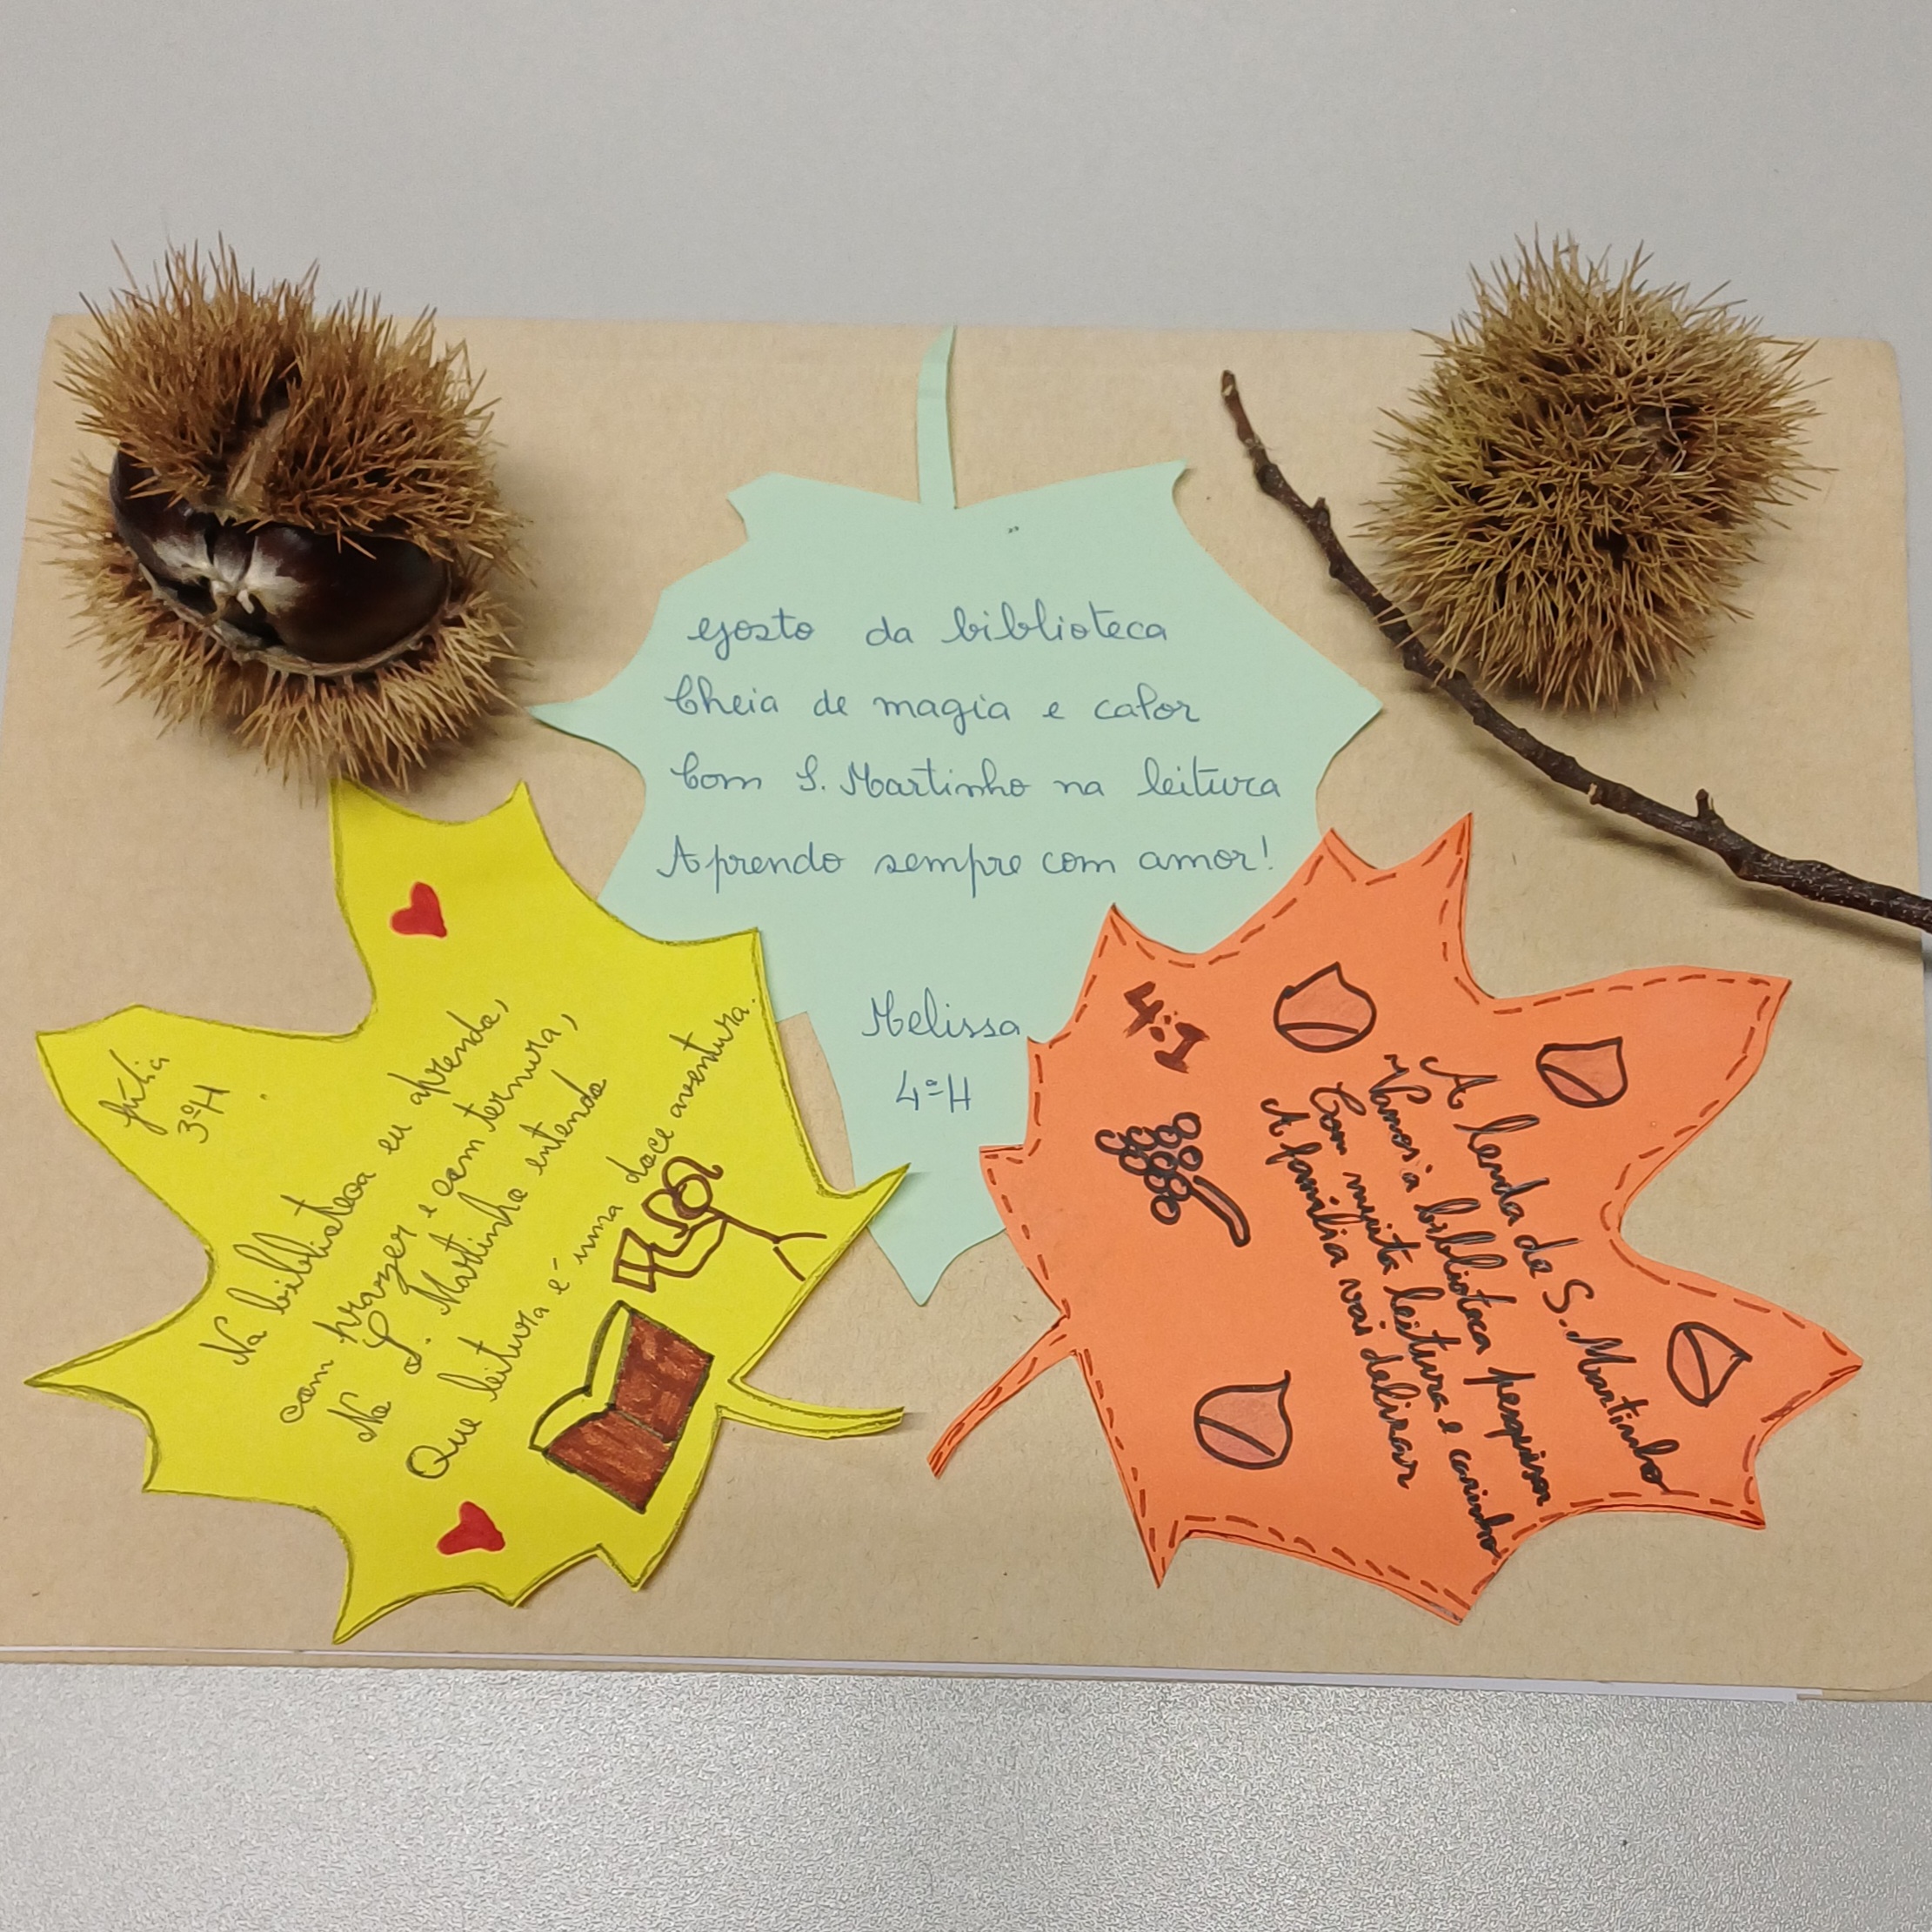 Gosto da biblioteca
Cheia de magia e calor
Com S. Martinho na leitura
Aprendo sempre com amor!
Melissa
4º H
Júlia
3º H
Na biblioteca eu aprendo,
com prazer e com ternura,
No S. Martinho entendo
Que leitura é uma doce aventura.
4:I
A lenda de S. Martinho
Vamos à biblioteca pesquisar
Com muita leitura e carinho
A família vai delirar